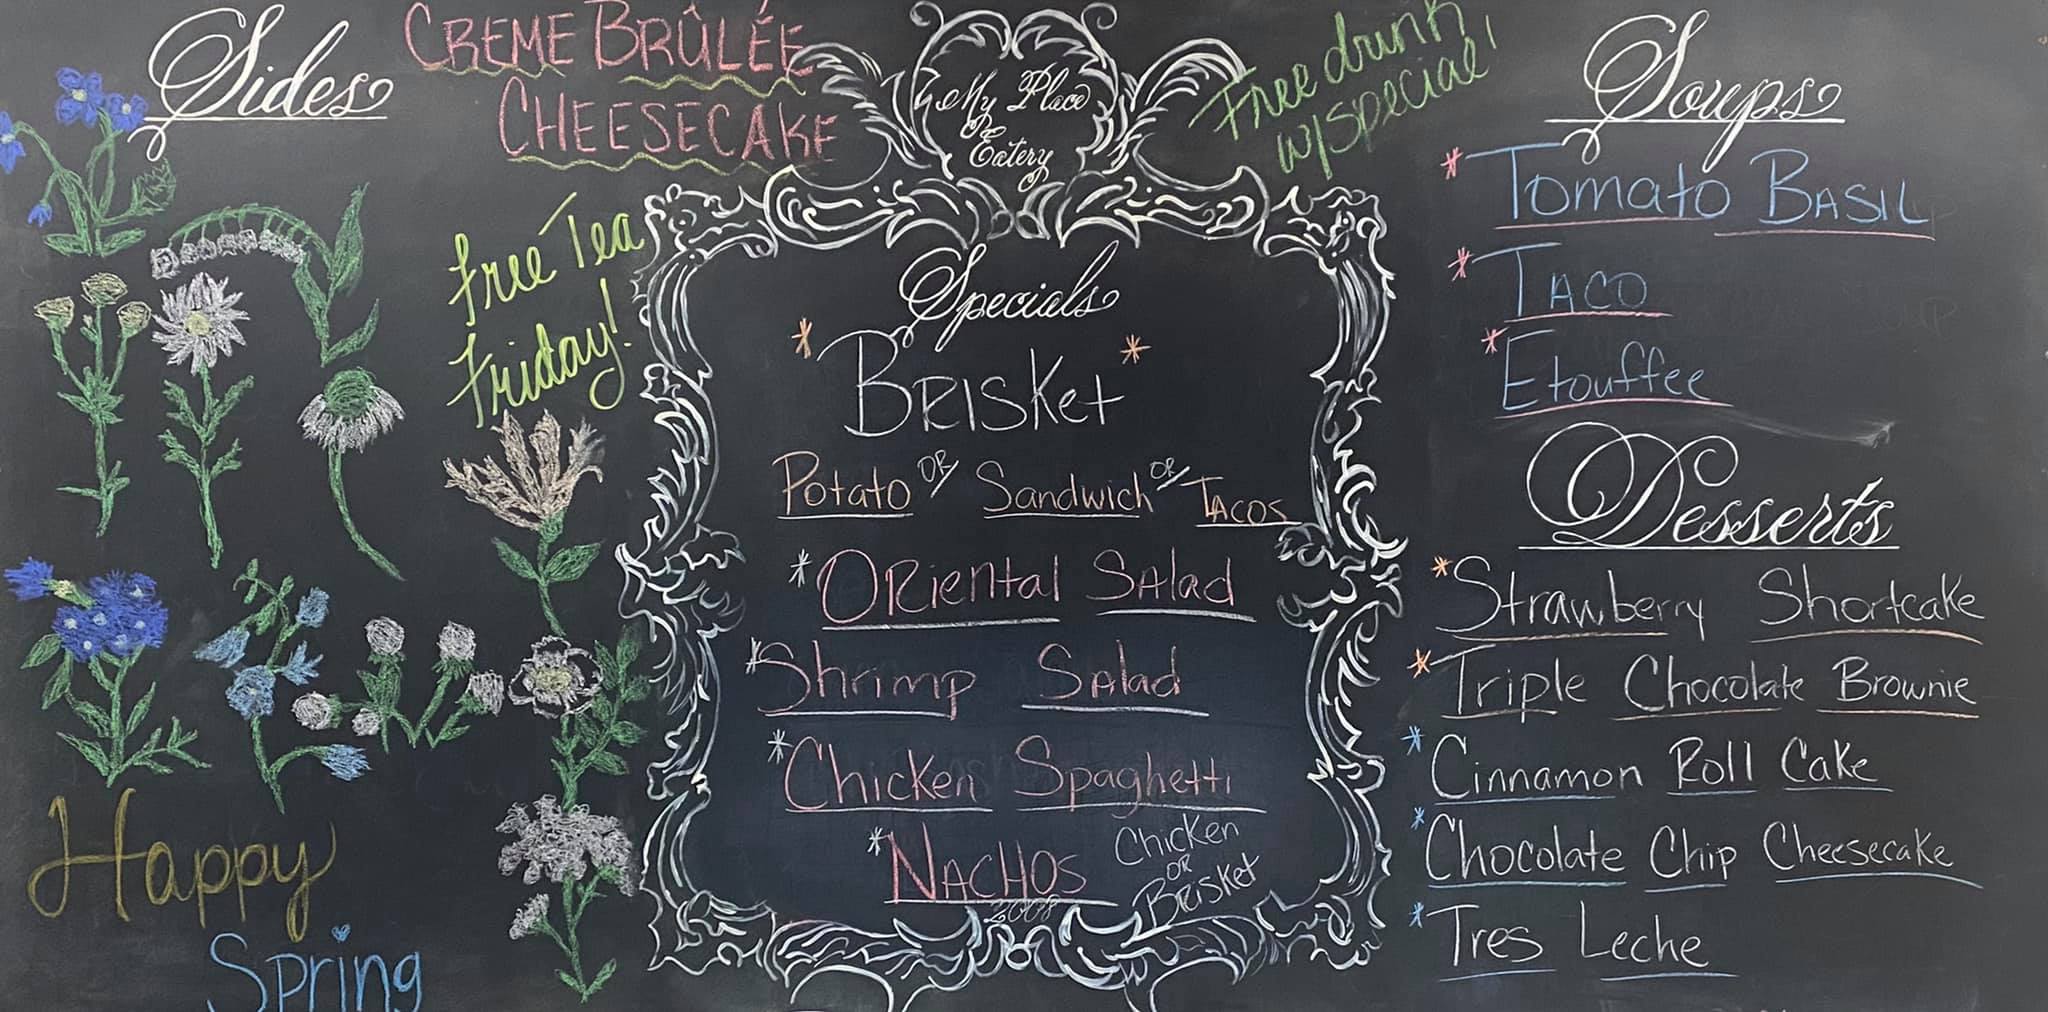 Sides
CREME BRÛLÉE
CHEESECAKE
Free Tea
Friday!
Happy
Spring
My Place
Eatery
Free drink
w/special!
Specials
* BRISKet *
Potato OR Sandwich OR TACOS
* ORiental SAlad
* Shrimp SAlad
* Chicken Spaghetti
* NACHOS Chicken
OR
BRisket
2008
Soups
* Tomato BASIL
* TACO
* Etouffee
Desserts
* Strawberry Shortcake
* Triple Chocolate Brownie
* Cinnamon Roll Cake
* Chocolate Chip Cheesecake
* Tres Leche